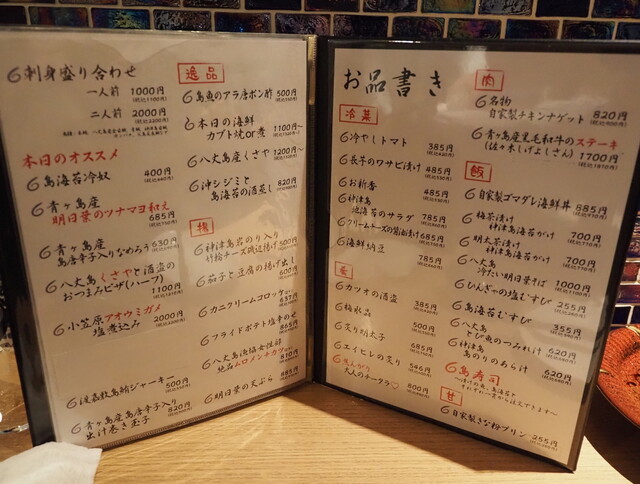 刺身盛り合わせ
一人前 1000円
(税込1100円)
二人前 2000円
(税込2200円)
本日のオススメ
島海苔冷奴 400円
(税込440円)
青ヶ島産
明日葉のツナマヨ和え
685円
青ヶ島産
島唐辛子入りなめろう 630円
八丈島くさやと酒盗の
おつまみピザ(ハーフ)
1100円
小笠原アオウミガメ
塩煮込み 2000円
渡嘉敷島鮪ジャーキー 500円
青ヶ島産島唐辛子入り
出汁巻き玉子 820円
逸品
島魚のアラ唐ポン酢 500円
本日の海鮮
カブト焼or煮 1100円~
八丈島産くさや 1200円~
沖シジミと
島海苔の酒蒸し 820円
揚
神津島名のり入り
竹輪チーズ磯辺揚げ 500円
茄子と豆腐の揚げ出し
600円
カニクリームコロッケ
637円
フライドポテト塩辛のせ
865円
八丈島漁協女性部
地品ムロメンチカツ
810円
明日葉の天ぷら 885円
お品書き
冷菜
冷やしトマト 385円
長芋のワサビ漬け 485円
お新香 485円
神津島
池海苔のサラダ 785円
クリームチーズの醤油漬け 685円
海鮮納豆 785円
肴
カツオの酒盗 385円
梅水晶 500円
炙り明太子 685円
エイヒレの炙り 546円
大人のチータラ♡ 800円
肉
名物
自家製チキンナゲット 820円
青ヶ島産黒毛和牛のステーキ
(佐々木しげよしさん) 1700円
飯
自家製ゴマダレ海鮮丼 885円
梅茶漬け
神津島海苔がけ 700円
明太茶漬け
神津島海苔がけ 700円
八丈島
冷たい明日葉そば 1000円
ひんぎゃの塩むすび 255円
島海苔むすび 355円
八丈島
とび魚のつみれ汁 620円
神津島
あのりのあら汁 620円
島寿司
甘
自家製きな粉プリン 255円